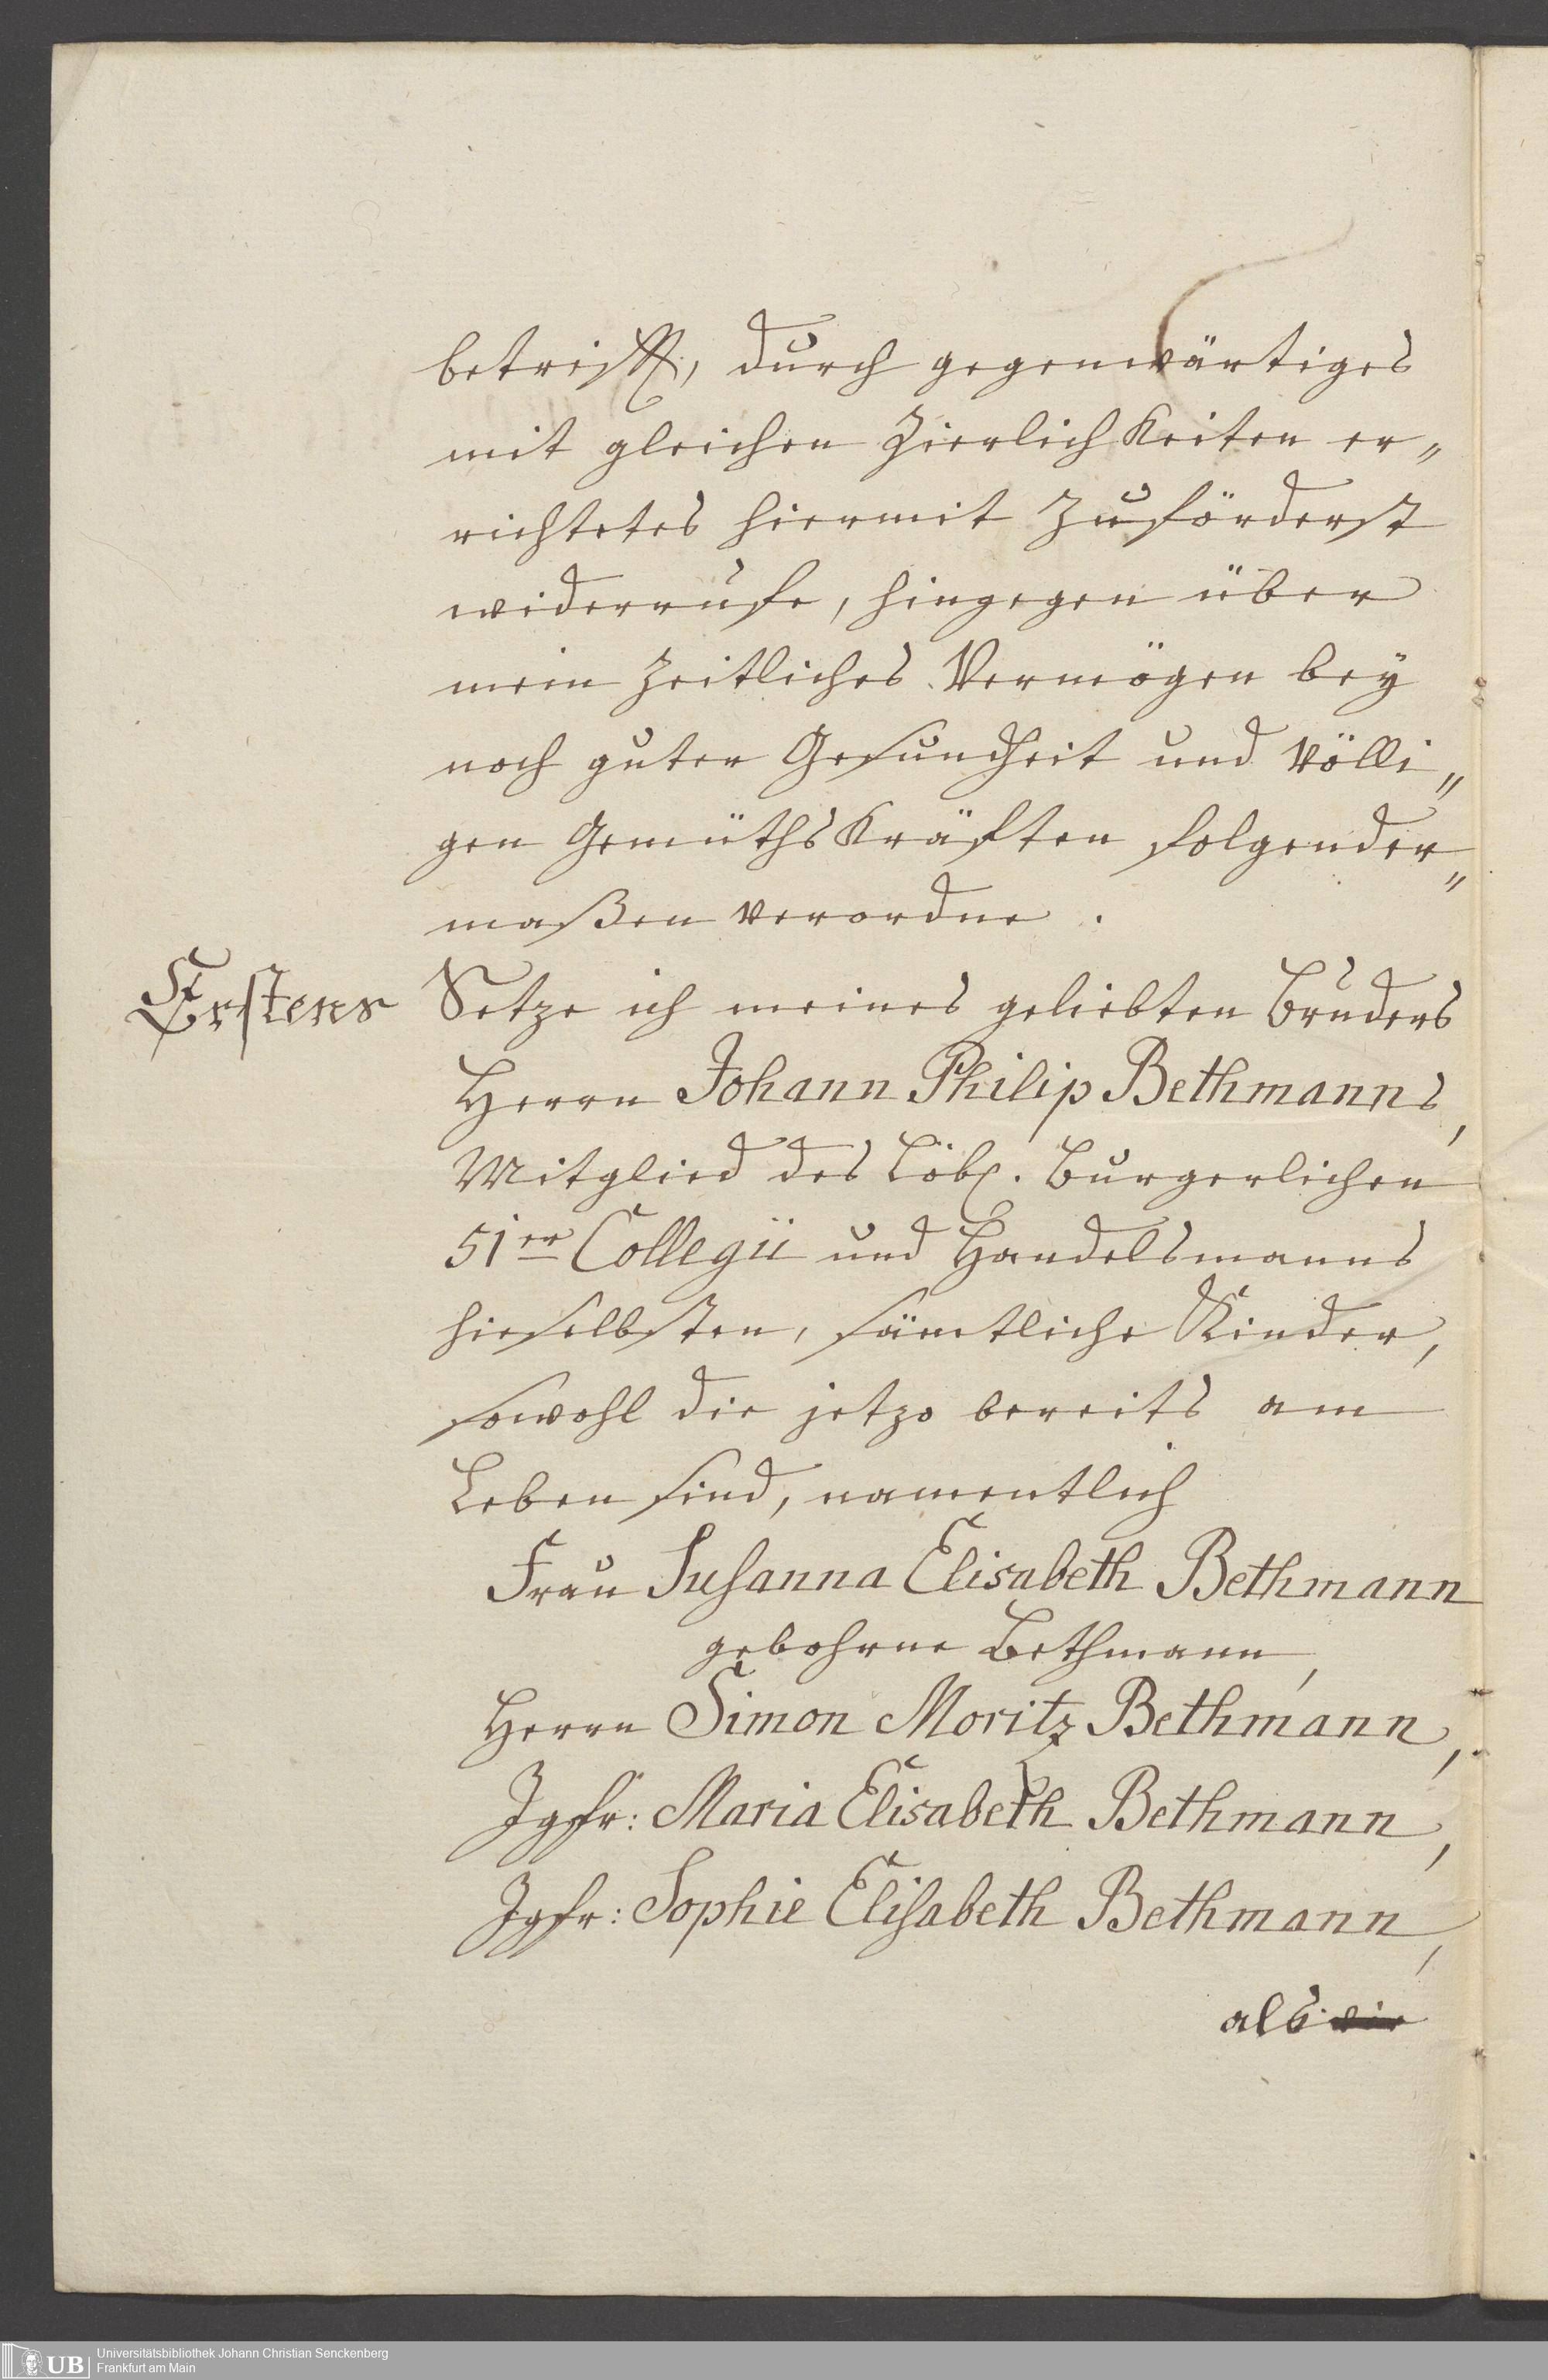 betrifft, durch gegenwärtiges
mit gleichen Zierlichkeiten er„
richtetes hiermit zuförderst
widerrufe, hingegen über
mein zeitliches Vermögen bey
noch guter Gesundheit und völli„
gen Gemüthskräften folgender„
maßen verordne.
Erstens Setze ich meines geliebten Bruders
Herrn Johann Philip Bethmanns,
Mitglied des Löbl. Burgerlichen
51er Collegii und Handelsmanns
hieselbsten, sämtliche Kinder,
sowohl die jetzo bereits am
Leben sind, namentlich
Frau Susanna Elisabeth Bethmann
gebohrne Bethmann,
Herrn Simon Moritz Bethmann,
Jgfr: Maria Elisabeth Bethmann,
Jgfr: Sophie Elisabeth Bethmann,
als
UB Universitätsbibliothek Johann Christian Senckenberg
Frankfurt am Main